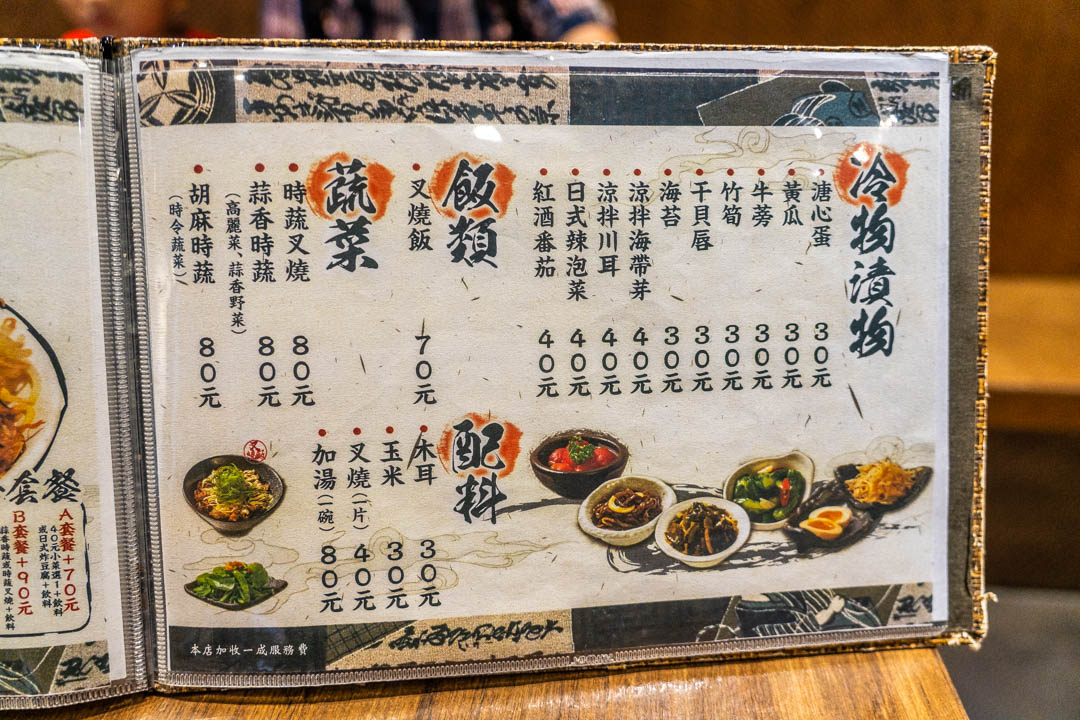 冷物漬物
溏心蛋 30元
黃瓜 30元
牛蒡 30元
竹筍 30元
干貝唇 30元
海苔 30元
涼拌海帶芽 40元
涼拌川耳 40元
日式辣泡菜 40元
紅酒番茄 40元
飯類
叉燒飯 70元
蔬菜
時蔬叉燒 80元
蒜香時蔬 80元
(高麗菜、蒜香野菜)
胡麻時蔬 80元
(時令蔬菜)
配料
木耳 30元
玉米 30元
叉燒(一片) 40元
加湯(一碗) 80元
本店加收一成服務費
套餐
A套餐+70元
40元小菜選1+飲料
或日式炸豆腐+飲料
B套餐+90元
蒜香時蔬或時蔬叉燒+飲料